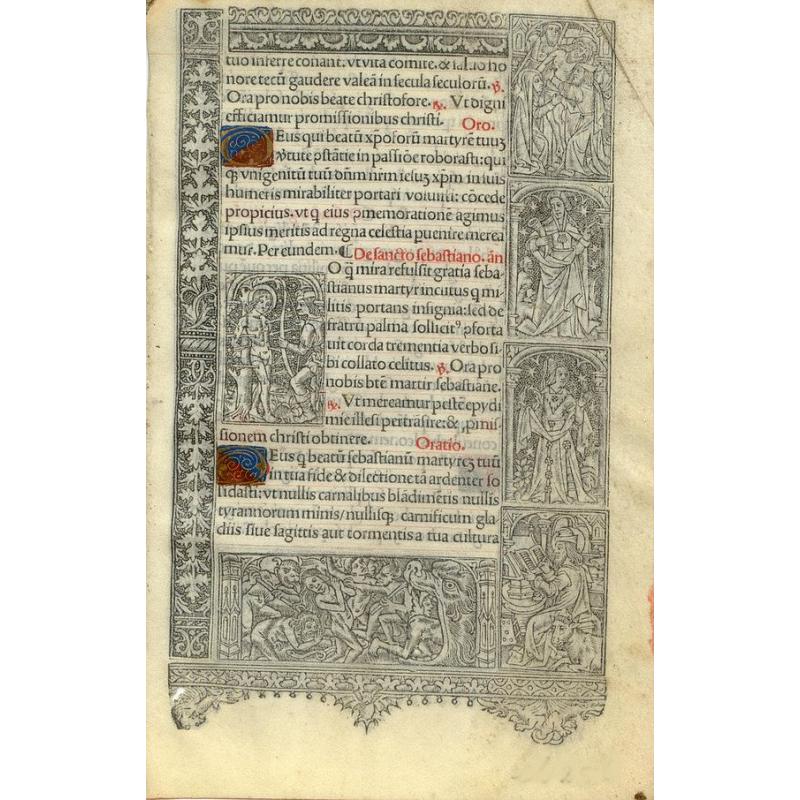 tuo inferre conant̄. vt vita comite. & ho
nore tecū gaudere valeā in secula seculorū. ℣.
Ora pro nobis beate christofore. ℟. Vt digni
efficiamur promissionibus christi. Oro.
DEus qui beatū xp̄oforū martyrē tuuꝫ
v̄tute ꝯstātie in passiōe roborasti: qui
qꝫ vnigenitū tuū dn̄m nr̄m iesuꝫ xp̄m in suis
humeris mirabiliter portari voluisti: cōcede
propicius. vt q eius ꝯmemorationē agimus
ipsius meritis ad regna celestia ꝑuenire merea
mur. Per eundem. ¶ De sancto sebastiano. añ
O q̄ mira refulsit gratia seba
stianus martyr inclitus q mi
litis portans insignia: sed de
fratrū palma sollicitꝰ ꝯforta
uit corda trementia verbo si
bi collato celitus. ℣. Ora pro
nobis btē martir sebastiane.
℟. Vt mereamur pestē epydi
mie illesi pertrāsire: & ꝓmis
sionem christi obtinere. Oratio.
DEus q beatū sebastianū martyreꝫ tuū
in tua fide & dilectione tā ardenter so
lidasti: vt nullis carnalibus blādimētis nullis
tyrannorum minis/nullisqꝫ carnificum gla
diis siue sagittis aut tormentis a tua cultura